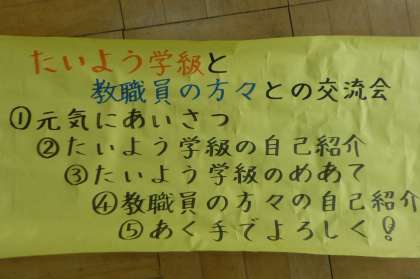 たいよう学級と
教職員の方々との交流会
①元気にあいさつ
②たいよう学級の自己紹介
③たいよう学級のめあて
④教職員の方々の自己紹介
⑤あく手でよろしく!